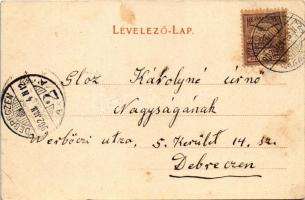 LEVELEZŐ-LAP.
Gloz Károlyné úrnő
Nagyságának
Werbőczi utza, 5. Kerület 14. sz.
Debreczen
DEBRECZEN